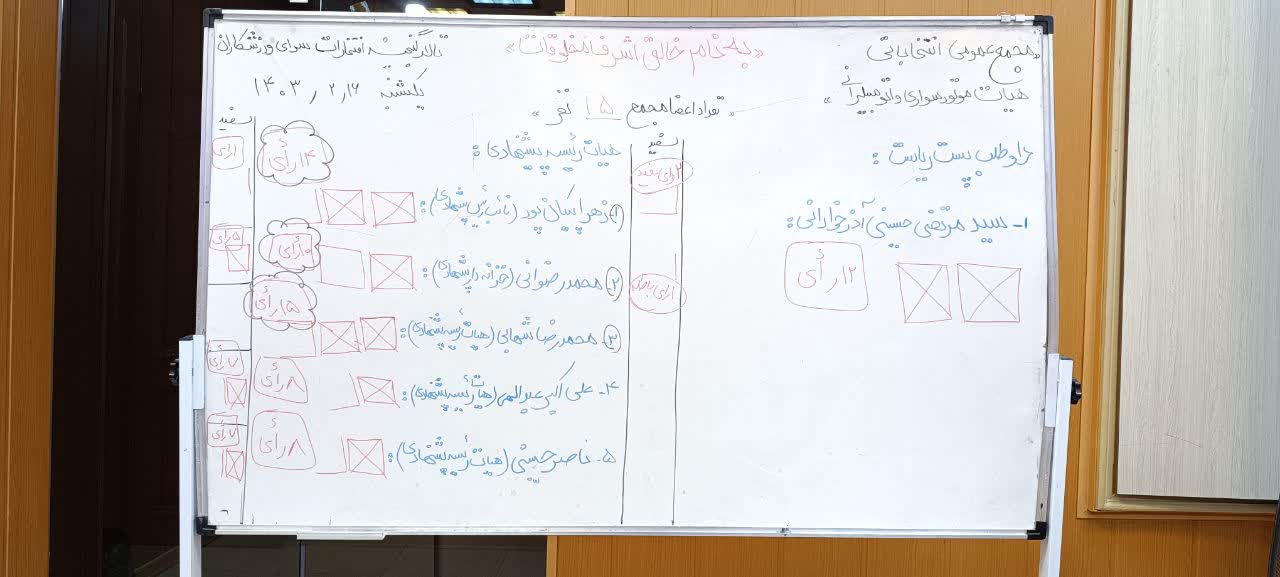 «به نام خالق اشرف مخلوقات»
«مجمع عمومی انتخاباتی
هیات موتورسواری و اتومبیلرانی»
تالار گنجینه افتخارات سرای ورزشکاران
یکشنبه ۱۴۰۳/۲/۱۶
«تعداد اعضا مجمع ۱۵ نفر»
داوطلب پست ریاست:
۱- سید مرتضی حسینی آذرخوارانی:
۱۲ رأی
سفید
۲ رای سفید
۱ رای باطل
هیات رئیسه پیشنهادی:
۱- زهرا سکان پور (نائب رئیس پیشنهادی):
۱۴ رأی
۲- محمد رضوانی (خزانه دار پیشنهادی):
رأی
۳- محمدرضا شهابی (هیات رئیسه پیشنهادی):
۱۵ رأی
۴- علی اکبر (هیات رئیسه پیشنهادی):
۸ رأی
۵- ناصر حسینی (هیات رئیسه پیشنهادی):
۸ رأی
سفید
۱ رأی
۵ رأی
۷ رأی
۷ رأی